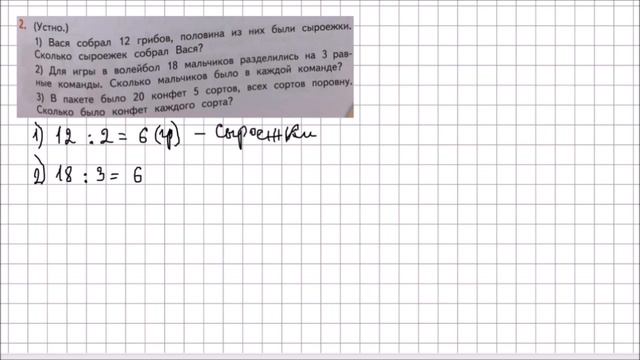 2. (Устно.)
1) Вася собрал 12 грибов, половина из них были сыроежки.
Сколько сыроежек собрал Вася?
2) Для игры в волейбол 18 мальчиков разделились на 3 рав-
ные команды. Сколько мальчиков было в каждой команде?
3) В пакете было 20 конфет 5 сортов, всех сортов поровну.
Сколько было конфет каждого сорта?
1) 12 : 2 = 6 (гр) – сыроежки
2) 18 : 3 = 6